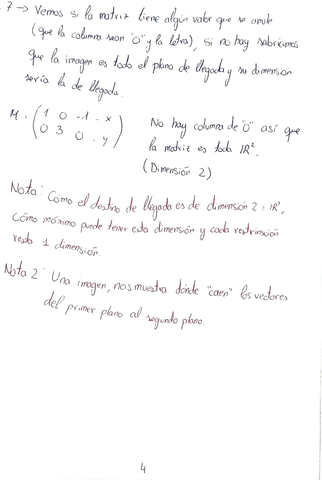 7 → Vemos si la matriz tiene algún valor que se anule
(que la columna sean "0" y la letra), si no hay sabríamos
que la imagen es todo el plano de llegada y su dimensión
sería la de llegada.
M = ( 1 0 -1 · x
0 3 0 · y )
No hay columna de "0" así que
la matriz es toda IR².
(Dimensión 2)
Nota: Como el destino de llegada es de dimensión 2 = IR²,
cómo máximo puede tener esta dimensión y cada restrinxción
resta 1 dimensión.
Nota 2: Una imagen, nos muestra dónde "caen" los vectores
del primer plano al segundo plano
4